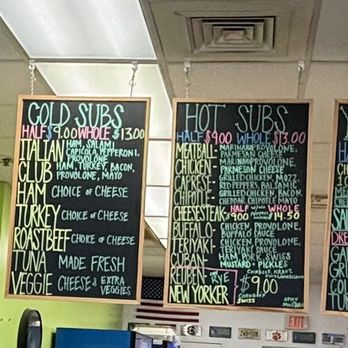 COLD SUBS
HALF $9.00 WHOLE $13.00
ITALIAN HAM, SALAMI
CAPICOLA, PEPPERONI,
PROVOLONE
CLUB HAM, TURKEY, BACON,
PROVOLONE, MAYO
HAM CHOICE OF CHEESE
TURKEY CHOICE OF CHEESE
ROAST BEEF CHOICE OF CHEESE
TUNA MADE FRESH
VEGGIE CHEESE & EXTRA
VEGGIES
HOT SUBS
HALF $9.00 WHOLE $13.00
MEATBALL- MARINARA, PROVOLONE,
PARMESAN CHEESE
CHICKEN- MARINARA, PROVOLONE,
PARMESAN CHEESE
CAPRESE- GRILLED CHICKEN, MOZZ,
RED PEPPERS, BALSAMIC
CHIPOTLE- GRILLED CHICKEN, BACON,
CHEDDAR, CHIPOTLE MAYO
CHEESESTEAK- HALF $9.00 WHOLE 14.50
BUFFALO- CHICKEN, PROVOLONE,
BUFFALO SAUCE
TERIYAKI- CHICKEN, PROVOLONE,
TERIYAKI SAUCE
CUBAN- HAM, PORK, SWISS
MUSTARD + PICKLES
REUBEN- ON RYE
NEW YORKER $9.00
SWISS
EXIT